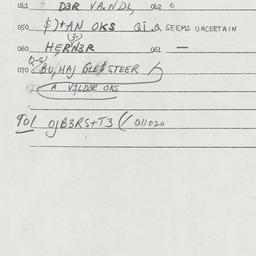 041 D3R VA.NDL, 042 0
050 $)+AN OKS QI.Q SEEMS UNCERTAIN
(3-)
060 HERN3R 061 —
Q-S/
070 BU,HAJ GLE STEER
A V3LD3R OKS
901 OJB3RS+T3 (/ 011020